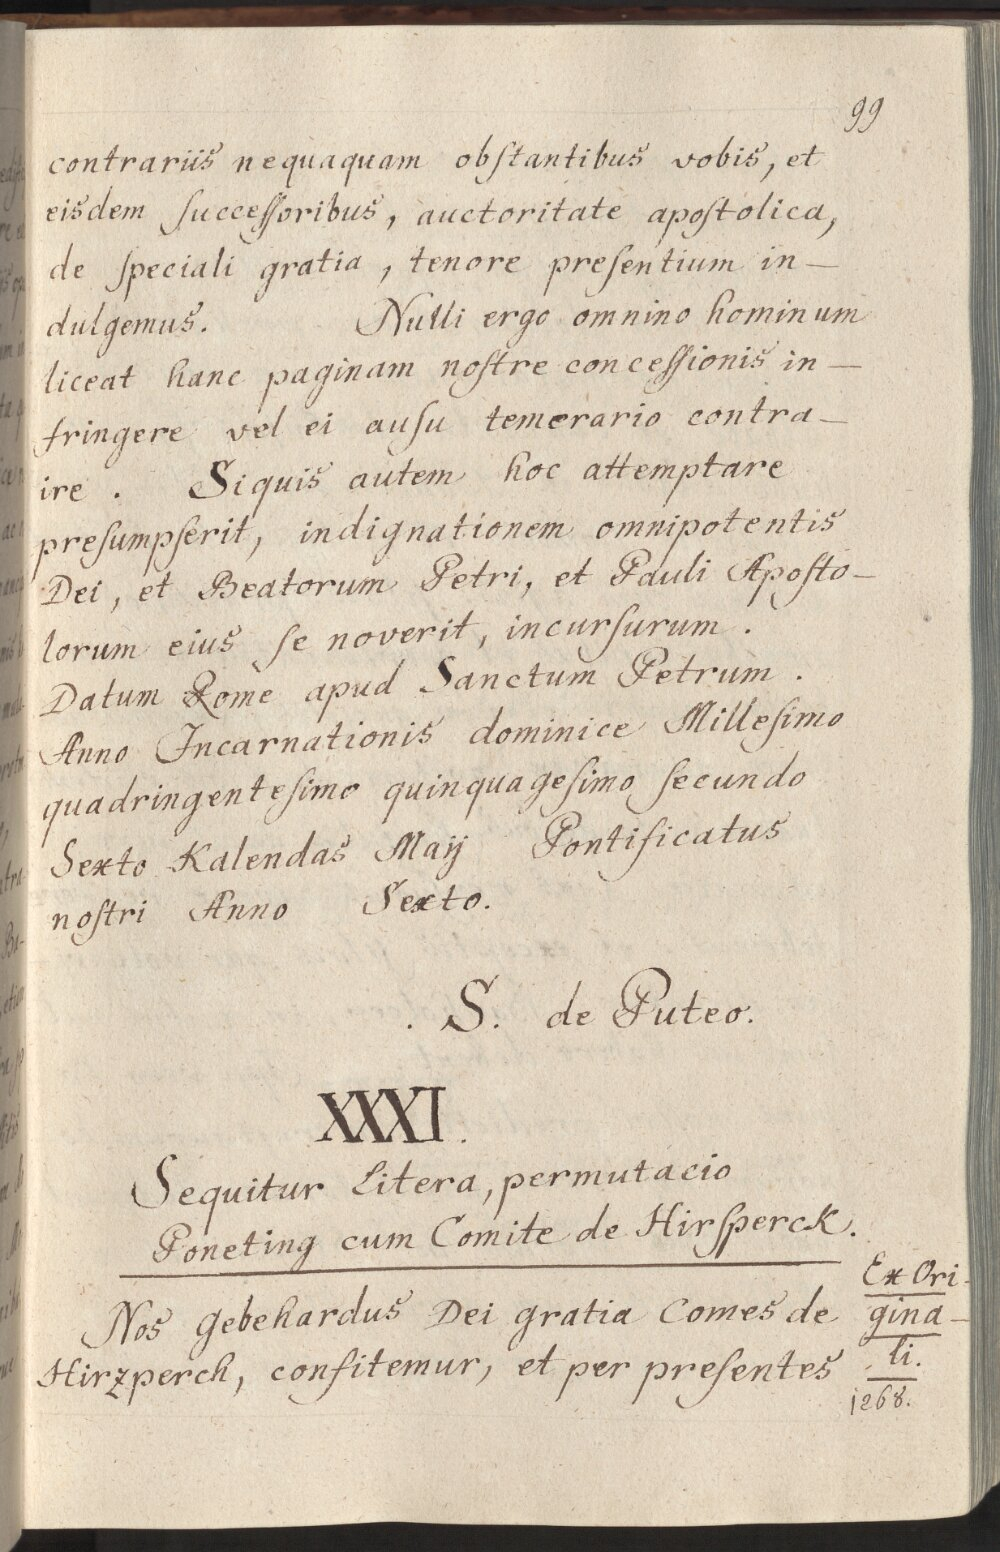 99
contrariis nequaquam obstantibus vobis, et
eisdem successoribus, auctoritate apostolica,
de speciali gratia, tenore presentium in-
dulgemus. Nulli ergo omnino hominum
liceat hanc paginam nostre concessionis in-
fringere vel ei ausu temerario contra-
ire. Siquis autem hoc attemptare
presumpserit, indignationem omnipotentis
Dei, et Beatorum Petri, et Pauli Aposto-
lorum eius se noverit, incursurum.
Datum Rome apud Sanctum Petrum.
Anno Incarnationis dominice Millesimo
quadringentesimo quinquagesimo secundo
Sexto Kalendas Maij Pontificatus
nostri Anno Sexto.
. S. de Puteo.
XXXI.
Sequitur Litera, permutacio
Poneting cum Comite de Hirsperck.
Nos Gebehardus Dei gratia Comes de
Hirzperch, confitemur, et per presentes
Ex Ori-
gina-
li.
1268.